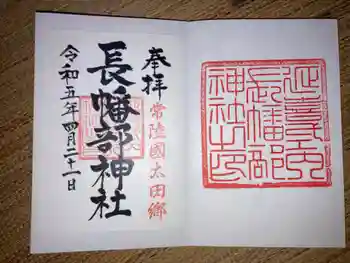 延喜式内
長幡部
神社之印
奉拝
常陸國太田郷
長幡部神社
令和五年四月二十一日